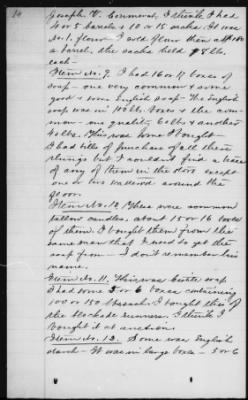 14
Joseph V. I think I had
4 or 5 barrels & 10 or 15 sacks. It was
No. 1. flour I sold flour then at
a barrel, the sacks held 98 lbs.
each.
Item No. 9. I had 16 or 17 boxes of
soap - one very common & some
good & some English soap. The English
soap was in lb. bars & the com-
mon - one quality, 6 lbs & another
40 lbs. This was some I bought -
I had bills of purchase of all these
things but I couldn't find a trace
of any of them in the store except
one or two scattered around the
floor.
Item No. 12. These were common
tallow candles, about 15 or 16 boxes
of them. I bought them from the
same man that I used to get the
soap from - I don't remember his
name.
Item No. 11. This was soap
I had some 5 or 6 boxes containing
100 or 150 I bought this of
the blockade runners. I think I
bought it at auction.
Item No. 13. Some was English
starch - It was in large boxes - 5 or 6